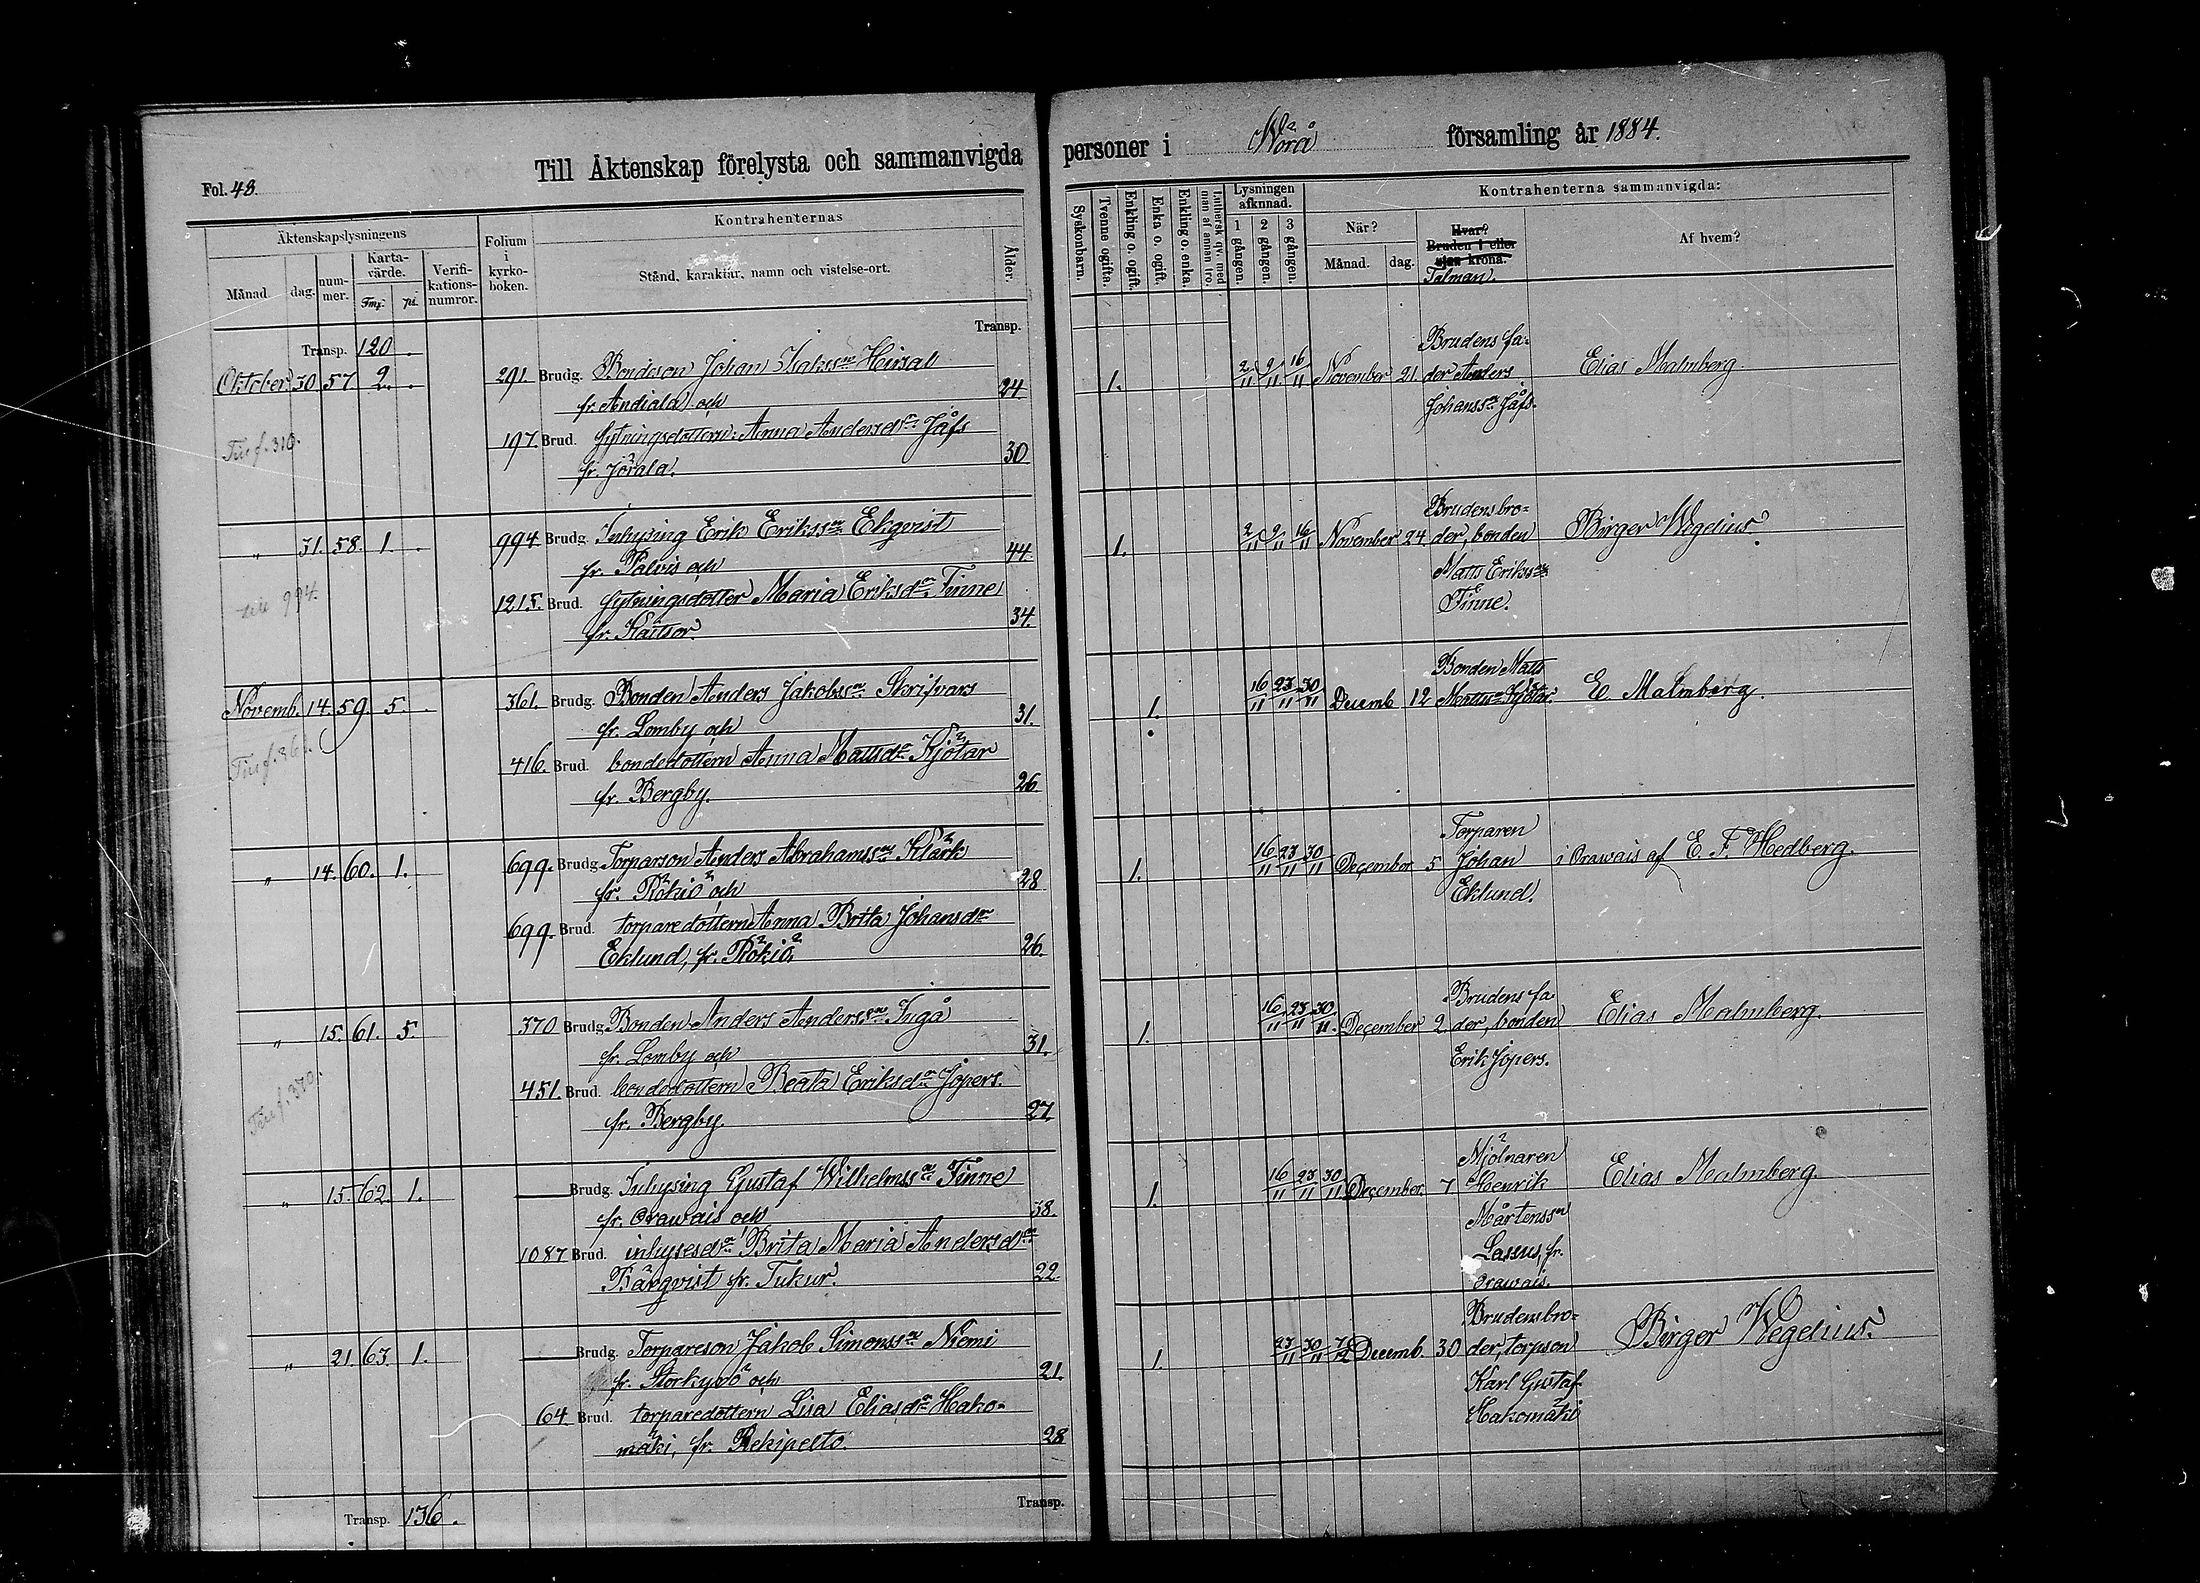 Till Äktenskap förelysta och sammanvigda personer i Wörå församling år 1884.
Fol. 48.
Äktenskapslysningens
Månad
dag.
nummer.
Kartavärde.
Fmk
pi.
Verifikationsnumror.
Folium i kyrkoboken.
Kontrahenternas
Stånd, karaktär, namn och vistelse-ort.
Ålder.
Syskonbarn.
Tvenne ogifta.
Enkling o. ogift.
Enka o. ogift.
Enkling o. enka.
Luthersk qv. med man af annan tro.
Lysningen afknnad.
1 gången.
2 gången.
3 gången.
Kontrahenterna sammanvigda:
När?
Månad.
dag.
Hvar?
Bruden i eller
utan krona.
Talman.
Af hvem?
Transp.
Transp. 120.
Oktober 30 57 2. . 291. Brudg. Bondeson Johan Isakssn Heirsal
fr. Andiala och 24
197. Brud. sytningsdottern Anna Andersdr Jåfs
fr. Jörala. 30
Tin f. 310.
1. 2/11 9/11 16/11 November 21.
Brudens fa-
der Anders
Johanssn Jåfs.
Elias Malmberg.
" 31. 58. 1. . 994. Brudg. Inhysing Erik Erikssn Ekqvist
fr. Palvis och 44.
1215. Brud. sytningsdotter Maria Eriksdr Finne
fr. Kaitsor. 34.
994.
1. 2/11 9/11 16/11 November 24.
Brudens bro-
der, bonden
Matts Erikssn
Finne.
Birger Wegelius.
Novemb. 14. 59. 5. . 361. Brudg. Bonden Anders Jakobssn Skrifvars
fr. Lomby och 31.
416. Brud. bondedottern Anna Mattsdr Kjötar
fr. Bergby. 26
Tin f. 361.
1. 16/11 23/11 30/11 Decemb. 12
Bonden Matts
E. Malmberg.
" 14. 60. 1. 699. Brudg. Torparson Anders Abrahamssn Klärk
fr. Rökiö och 28
699. Brud. torparedottern Anna Brita Johansdr
Eklund, fr. Rökiö. 26.
1. 16/11 23/11 30/11 December 5
Torparen
Johan
Eklund.
i Orawais af E. F. Hedberg.
" 15. 61. 5. 370 Brudg. Bonden Anders Anderssn Ingå
fr. Lomby och 31.
451. Brud. bondedottern Beata Eriksdr Jopers.
fr. Bergby. 27
Tin f. 370.
1. 16/11 23/11 30/11. December 2.
Brudens fa
der, bonden
Erik Jopers.
Elias Malmberg.
" 15. 62. 1. Brudg. Inhysing Gustaf Wilhelmssn Finne
fr. Orawais och 38.
1087 Brud. inhysesdr Brita Maria Andersdr
Bärgvist fr. Tukur. 22.
1. 16/11 23/11 30/11 December. 7
Mjölnaren
Henrik
Mårtenssn
Lassus, fr.
Orawais.
Elias Malmberg.
" 21. 63. 1. Brudg. Torpareson Jakob Simonssn Niemi
fr. Storkyrö och 21.
64. Brud. torparedottern Lisa Eliasdr Hako-
mäki, fr. Rekipelto. 28
1. 23/11 30/11 7/12 Decemb. 30
Brudens bro-
der, torpson
Karl Gustaf
Hakomäki
Birger Wegelius.
Transp. 136.
Transp.